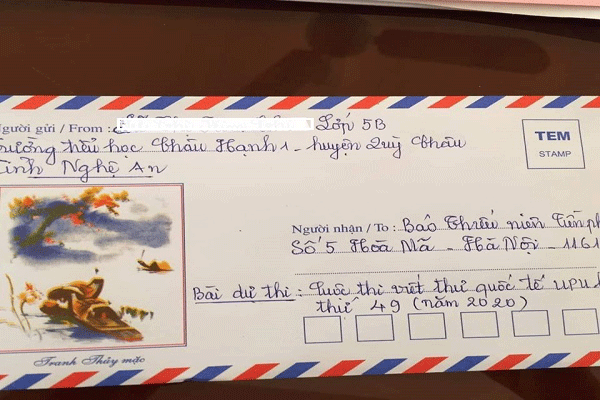 Người gửi / From : Lớp 5B
Trường tiểu học Châu Hạnh 1 - huyện Quỳ Châu
Tỉnh Nghệ An
TEM
STAMP
Người nhận / To : Báo Thiếu niên Tiền ph
Số 5 Hoà Mã - Hà Nội - 1161
Bài dự thi : Cuộc thi viết thư quốc tế UPU l
thứ 49 (năm 2020)
Tranh Thủy mặc